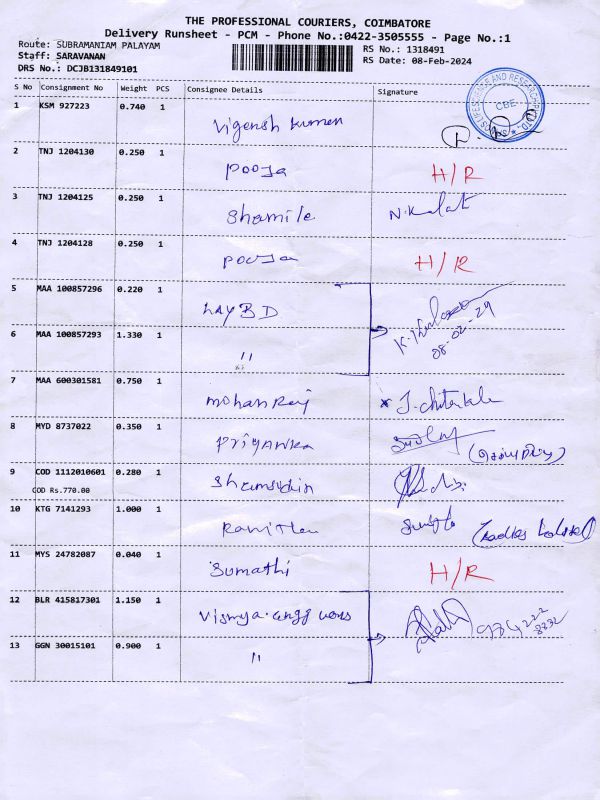 THE PROFESSIONAL COURIERS, COIMBATORE
Delivery Runsheet - PCM - Phone No.:0422-3505555 - Page No.:1
Route: SUBRAMANIAM PALAYAM RS No.: 1318491
Staff: SARAVANAN RS Date: 08-Feb-2024
DRS No.: DCJB131849101
S No Consignment No Weight PCS Consignee Details Signature
CBE
1 KSM 927223 0.740 1 Vigensh Kumen
2 TNJ 1204130 0.250 1 Pooja H/R
3 TNJ 1204125 0.250 1 Shamile
4 TNJ 1204128 0.250 1 Pooja H/R
5 MAA 100857296 0.220 1 LAYBD
08-02-24
6 MAA 100857293 1.330 1 "
7 MAA 600301581 0.750 1 mohanRaj
8 MYD 8737022 0.350 1 Priyanka
9 COD 1112010601 0.280 1 Shamsudin
COD Rs.770.00
10 KTG 7141293 1.000 1
11 MYS 24782087 0.040 1 Sumathi H/R
12 BLR 415817301 1.150 1
13 GGN 30015101 0.900 1 "